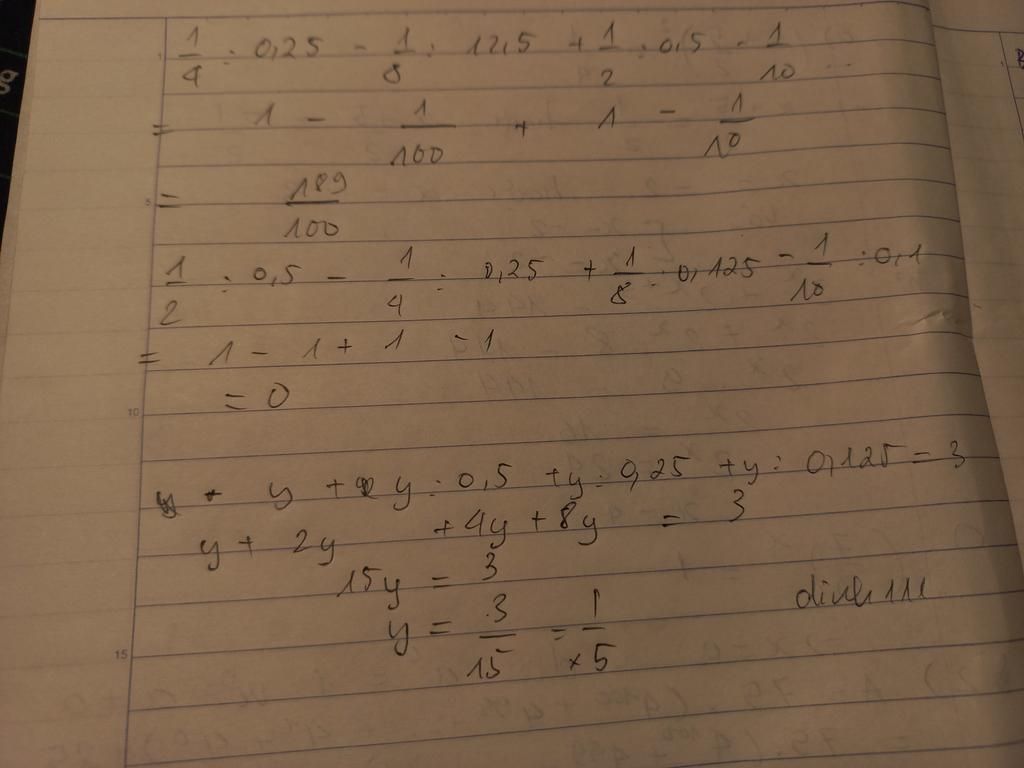 1/4 : 0,25 - 1/8 : 12,5 + 1/2 : 0,5 - 1/10
= 1 - 1/100 + 1 - 1/10
= 189/100
1/2 : 0,5 - 1/4 : 0,25 + 1/8 : 0,125 - 1/10 : 0,1
= 1 - 1 + 1 - 1
= 0
y + y : 0,5 + y : 0,25 + y : 0,125 = 3
y + 2y + 4y + 8y = 3
15y = 3
y = 3/15 = 1/5